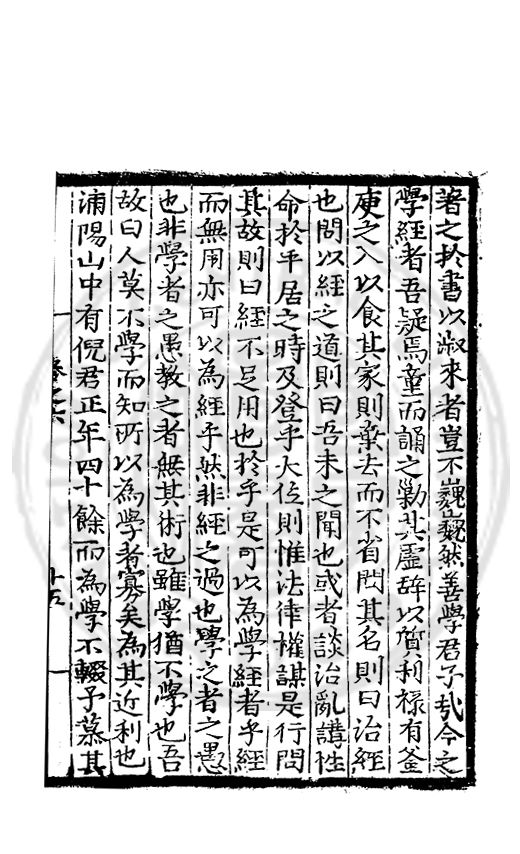 著之於書以淑來者豈不巍巍然善學君子哉今之
學經者吾疑焉童而誦之勦其虛辭以質利祿有釜
庾之入以食其家則棄去而不省問其名則曰治經
也問以經之道則曰吾未之聞也或者談治亂講性
命於平居之時及登乎大位則惟法律權謀是行問
其故則曰經不足用也於乎是可以為學經者乎經
而無用亦可以為經乎然非經之過也學之者之愚
也非學者之愚教之者無其術也雖學猶不學也吾
故曰人莫不學而知所以為學者寡矣為其近利也
浦陽山中有倪君正年四十餘而為學不輟予慕其
卷之六
十五